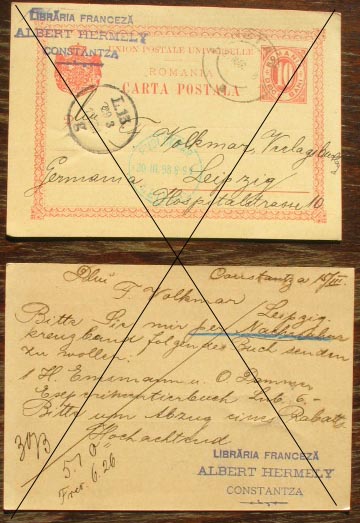 LIBRĂRIA FRANCEZĂ
ALBERT HERMELY
CONSTANTZA
UNION POSTALE UNIVERSELLE
ROMANIA
CARTA POSTALA
10
F. Volkmar, Verlagsbuchh
Germania Leipzig
Hospitalstrasse 10
Constantza 15/III.
F. Volkmar
Leipzig.
Bitte Sie mir per Nachnahme
kreuzband folgendes Buch senden
zu wollen:
1 H. Ensmann u. O. Dammer
Experimentierbuch Lnb. 6,-
Bitte um Abzug eines Rabatts
Hochachtend
LIBRĂRIA FRANCEZĂ
ALBERT HERMELY
CONSTANTZA
5.10
6.26